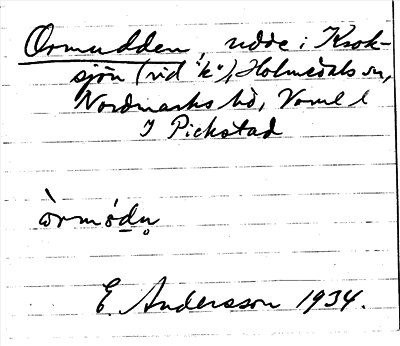 Ormudden, udde i Krok-
sjön (vid "k"), Holmedals sn,
Nordmarks hd, Vrml l
I Pickstad
òrmódn̥
E. Andersson 1934.